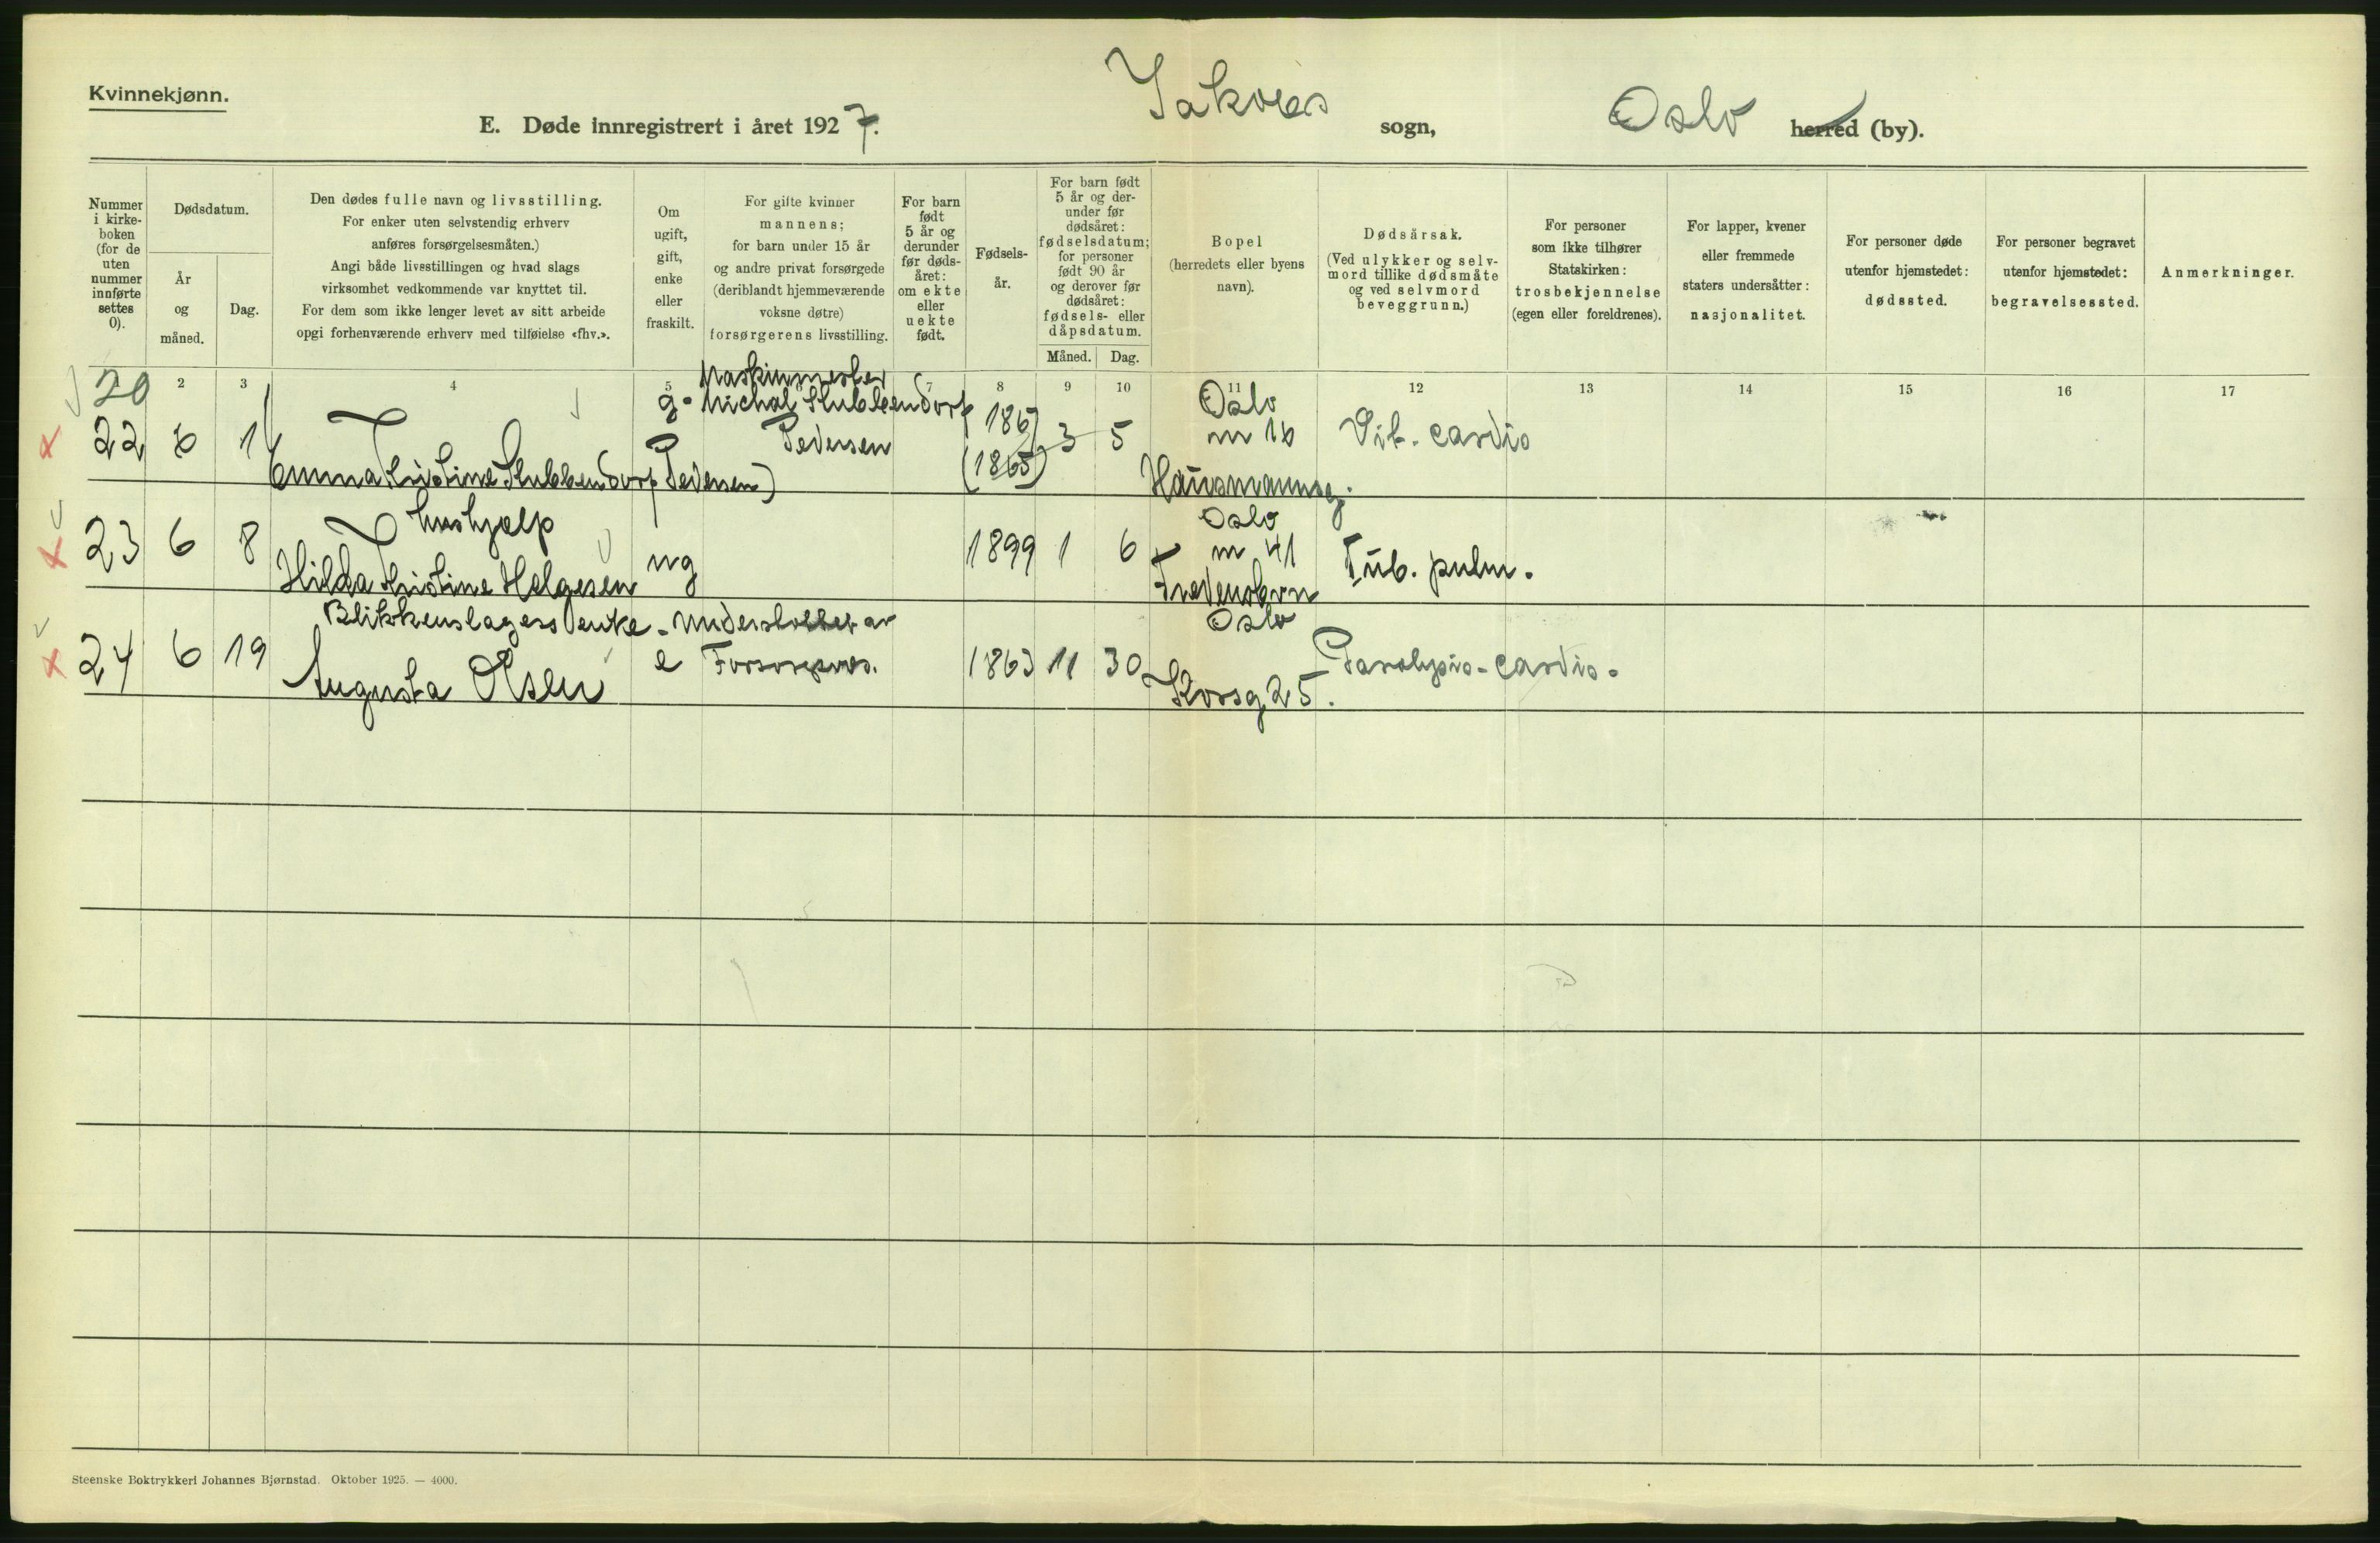 Kvinnekjønn.
E. Døde innregistrert i året 1927. Jakobs sogn, Oslo herred (by).
Nummer i kirkeboken (for de uten nummer innførte settes 0).
Dødsdatum.
År og måned.
Dag.
Den dødes fulle navn og livsstilling.
For enker uten selvstendig erhverv
anføres forsørgelsesmåten.)
Angi både livsstillingen og hvad slags
virksomhet vedkommende var knyttet til.
For dem som ikke lenger levet av sitt arbeide
opgi forhenværende erhverv med tilføielse «fhv.».
Om ugift, gift, enke eller fraskilt.
For gifte kvinner
mannens;
for barn under 15 år
og andre privat forsørgede
(deriblandt hjemmeværende
voksne døtre)
forsørgerens livsstilling.
For barn født 5 år og derunder før dødsåret: om ekte eller uekte født.
Fødselsår.
For barn født 5 år og derunder før dødsåret: fødselsdatum; for personer født 90 år og derover før dødsåret: fødsels- eller dåpsdatum.
Måned. Dag.
Bopel
(herredets eller byens
navn).
Dødsårsak.
(Ved ulykker og selvmord tillike dødsmåte og ved selvmord beveggrunn.)
For personer
som ikke tilhører
Statskirken:
trosbekjennelse
(egen eller foreldrenes).
For lapper, kvener
eller fremmede
staters undersåtter:
nasjonalitet.
For personer døde
utenfor hjemstedet:
dødssted.
For personer begravet
utenfor hjemstedet:
begravelsessted.
Anmerkninger.
20 2 3 4 5 7 8 9 10 11 12 13 14 15 16 17
Maskinmester
g. Michal Stubbendorf 1867 Oslo
22 6 1 Pedersen (1865) 3 5 nr 16 Vit. cordis
Emma Kristine Stubbendorf Pedersen) Hausmannsg.
hushjelp Oslo
23 6 8 ug 1899 1 6 nr 41 Tub. pulm.
Hilda Kristine Helgesen Fredensborn
Blikkenslagers enke - Understøttet av Oslo
24 6 19 e Forsorgsves. 1863 11 30 Paralysis-cordis.
Augusta Olsen Korsg 25.
Steenske Boktrykkeri Johannes Bjørnstad. Oktober 1925. — 4000.